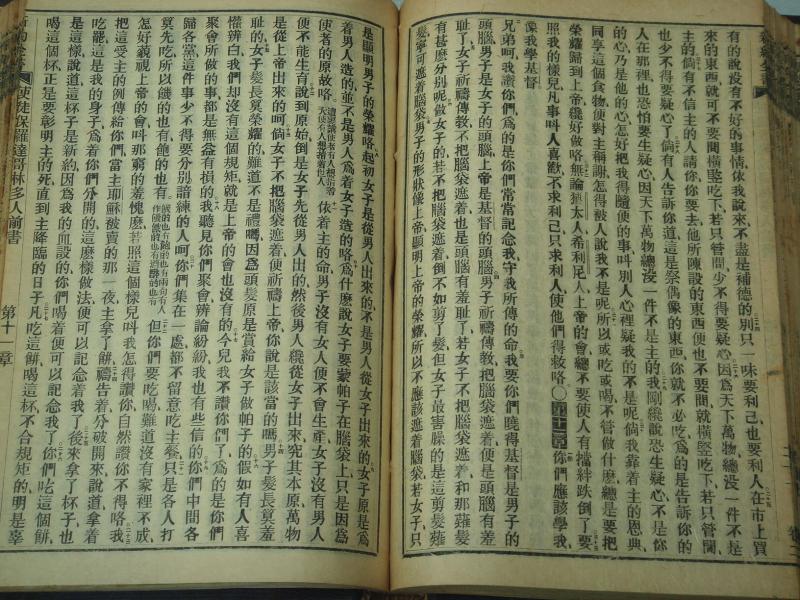 有的說沒有不好的事情依我說來不盡是補德的別只一味要利己也要利人在市上買
來的東西就可不要問橫竪吃下若只管問少不得要疑心因爲天下萬物總沒一件不是
主的倘有不信主的人請你你要去他所陳設的東西便也不要問就橫竪吃下若只管問
也少不得要疑心了倘有人告訴你道這是祭偶像的東西你就不必吃爲的是告訴你的
人在那裡也恐怕要生疑心因天下萬物總沒一件不是主的我剛纔說恐生疑心不是你
的心乃是他的心怎好把我得隨便的事叫別人心裡疑我的不是呢倘我靠着主的恩典
同享這個食物便對主稱謝怎得被人說我不是呢所以或吃或喝不管做什麽總是要把
榮耀歸到上帝纔好做咯無論猶太人希利尼人上帝的會總不要使人有擋絆跌倒了要
照我的樣兒凡事叫人喜歡不求利己只求利人使他們得救咯○第十一章你們應該學我
像我學基督
兄弟呵我讚你們爲的是你們常常記念我守我所傳的命我要你們曉得基督是男子的
頭腦男子是女子的頭腦上帝是基督的頭腦男子祈禱傳教把腦袋遮着便是頭腦有羞
耻了女子祈禱傳教不把腦袋遮着也是頭腦有羞耻了若女子不把腦袋遮着和那薙髮
有甚麽分別呢做女子的若不把腦袋遮着倒不如剪了髮但女子最害臊的是這剪髮薙
髮寧可遮着腦袋男子的形狀像上帝顯明上帝的榮耀所以不應該遮着腦袋若女子只
是顯明男子的榮耀咯起初女子是從男人出來的不是男人從女子出來的女子原是爲
着男人造的並不是男人爲着女子造的咯爲什麽說女子要蒙帕子在腦袋上只是因爲
使者的原故咯 依着主的命男子沒有女人便不會生產女子沒有男人
便不能生育說到原始倒是女子先從男人出來的然後男人纔從女子出來究其本原萬物
是從上帝出來的呵倘女子不把腦袋遮着便祈禱上帝你說是該當的嗎男子髮長莫羞
耻的女子髮長莫榮耀的難道不是禮嗎因爲頭髮原是賞給女子做帕子的假如有人喜
懽辨白我們却沒有這個規矩就是上帝的會也沒有的今兒我不讚你們了爲的是你們
聚會所做的事都是無益有損的我聽見你們聚會辨論紛紛我也有些信的你們中間各
歸各黨這件事少不得要分別諳練的人呵你們集在一處都不留意吃主餐只是各人打
莫先吃所以餓的也有飽的也有 但你們要吃喝難道沒有家裡不成
怎好藐視上帝的會叫那窮的羞愧麽若照這個樣兒叫我怎得讚你自然讚你不得咯我
把這受主的例傳給你們當主耶穌被賣的那一夜主拿了餅禱告着分破開來說道拿着
吃罷這是我的身子爲着你們分開的這麽樣做法便可以記念着我了後來拿了杯子也
是這樣說道這杯子是新約因爲我的血設的你們喝着便可以記念我了你們吃這個餅
喝這個杯正是要彰明主的死直到主降臨的日子凡吃這餅喝這杯不合規矩的明是辜
使徒保羅達哥林多人前書 第十一章